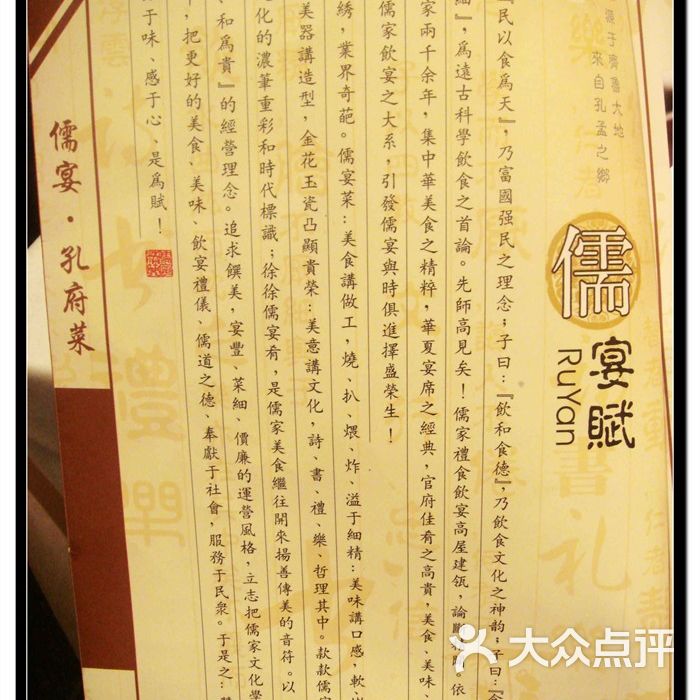 源于齊魯大地
來自孔孟之鄉
儒宴賦
RuYan
『民以食爲天』，乃富國强民之理念；子曰：『飲和食德』，乃飲食文化之神韵；子曰：
細』，爲遠古科學飲食之首論。先師高見矣！儒家禮食飲宴高屋建瓴，論
家兩千余年，集中華美食之精粹，華夏宴席之經典，官府佳肴之高貴，美食、美味、
儒家飲宴之大系，引發儒宴與時俱進擇盛榮生！
綉，業界奇葩。儒宴菜：美食講做工，燒、扒、煨、炸、溢于細精：美味講口感，軟
美器講造型，金花玉瓷凸顯貴榮：美意講文化，詩、書、禮、樂、哲理其中。款款儒
化的濃筆重彩和時代標識；徐徐儒宴肴，是儒家美食繼往開來揚善傳美的音符。以
、和爲貴』的經營理念。追求饌美，宴豐、菜細、價廉的運營風格，立志把儒家文化學
，把更好的美食、美味、飲宴禮儀、儒道之德、奉獻于社會，服務于民衆。于是之：
于味、感于心，是爲賦！
儒宴·孔府菜
大众点评